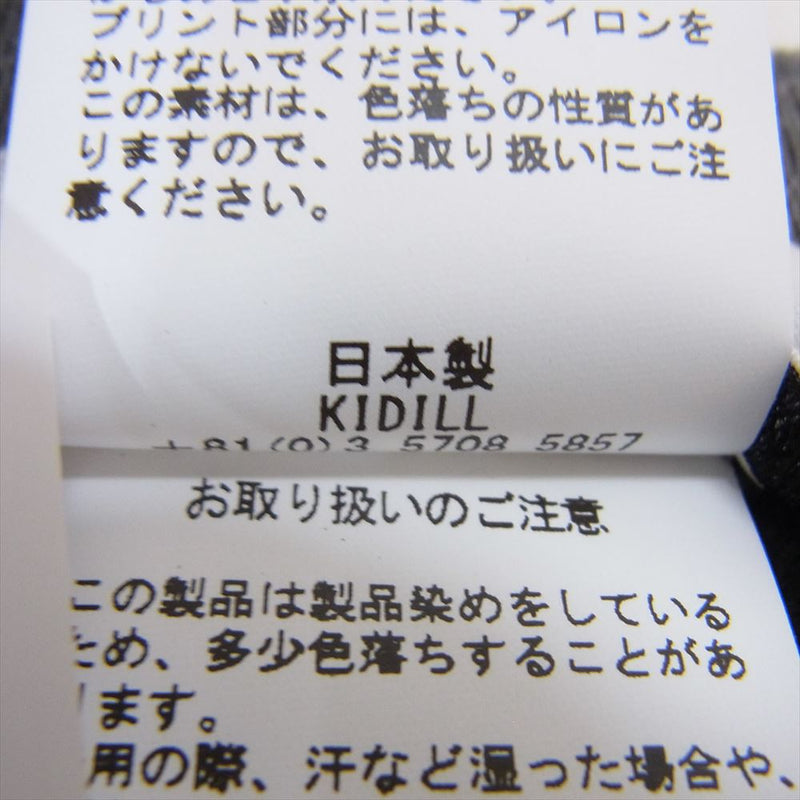 プリント部分には、アイロンを
かけないでください。
この素材は、色落ちの性質があ
りますので、お取り扱いにご注
意ください。
日本製
KIDILL
+81(0)3 5708 5857
お取り扱いのご注意
この製品は製品染めをしている
ため、多少色落ちすることがあ
ります。
用の際、汗など湿った場合や、